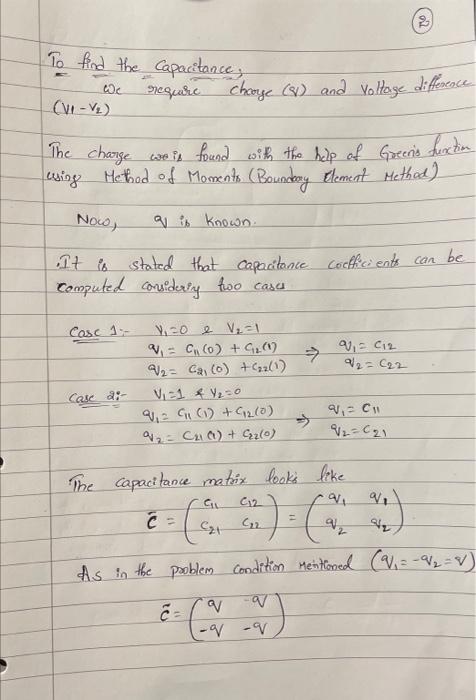 2
To find the Capacitance,
we require charge (q) and Voltage difference
(V1 - V2)
The charge is found with the help of Green's function
using Method of Moments (Boundary Element Method)
Now, q is known.
.It is stated that capacitance coefficients can be
computed considering two cases
Case 1:- V₁=0 & V₂=1
q₁ = C₁₁(0) + C₁₂(1) ⇒ q₁ = C₁₂
q₂ = C₂₁(0) + C₂₂(1) q₂ = C₂₂
Case 2:- V₁=1 & V₂=0
q₁ = C₁₁(1) + C₁₂(0) ⇒ q₁ = C₁₁
q₂ = C₂₁(1) + C₂₂(0) q₂ = C₂₁
The capacitance matrix looks like
C̄ = (C₁₁ C₁₂ = (q₁ q₁
C₂₁ C₂₂) q₂ q₂)
As in the problem condition Mentioned (q₁ = -q₂ = q)
C̄ = (q -q
-q -q)